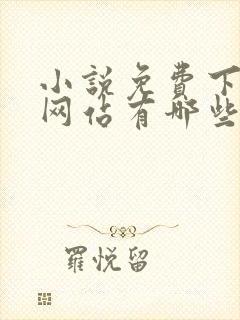 小说免费下
网站有哪些
羅悦留